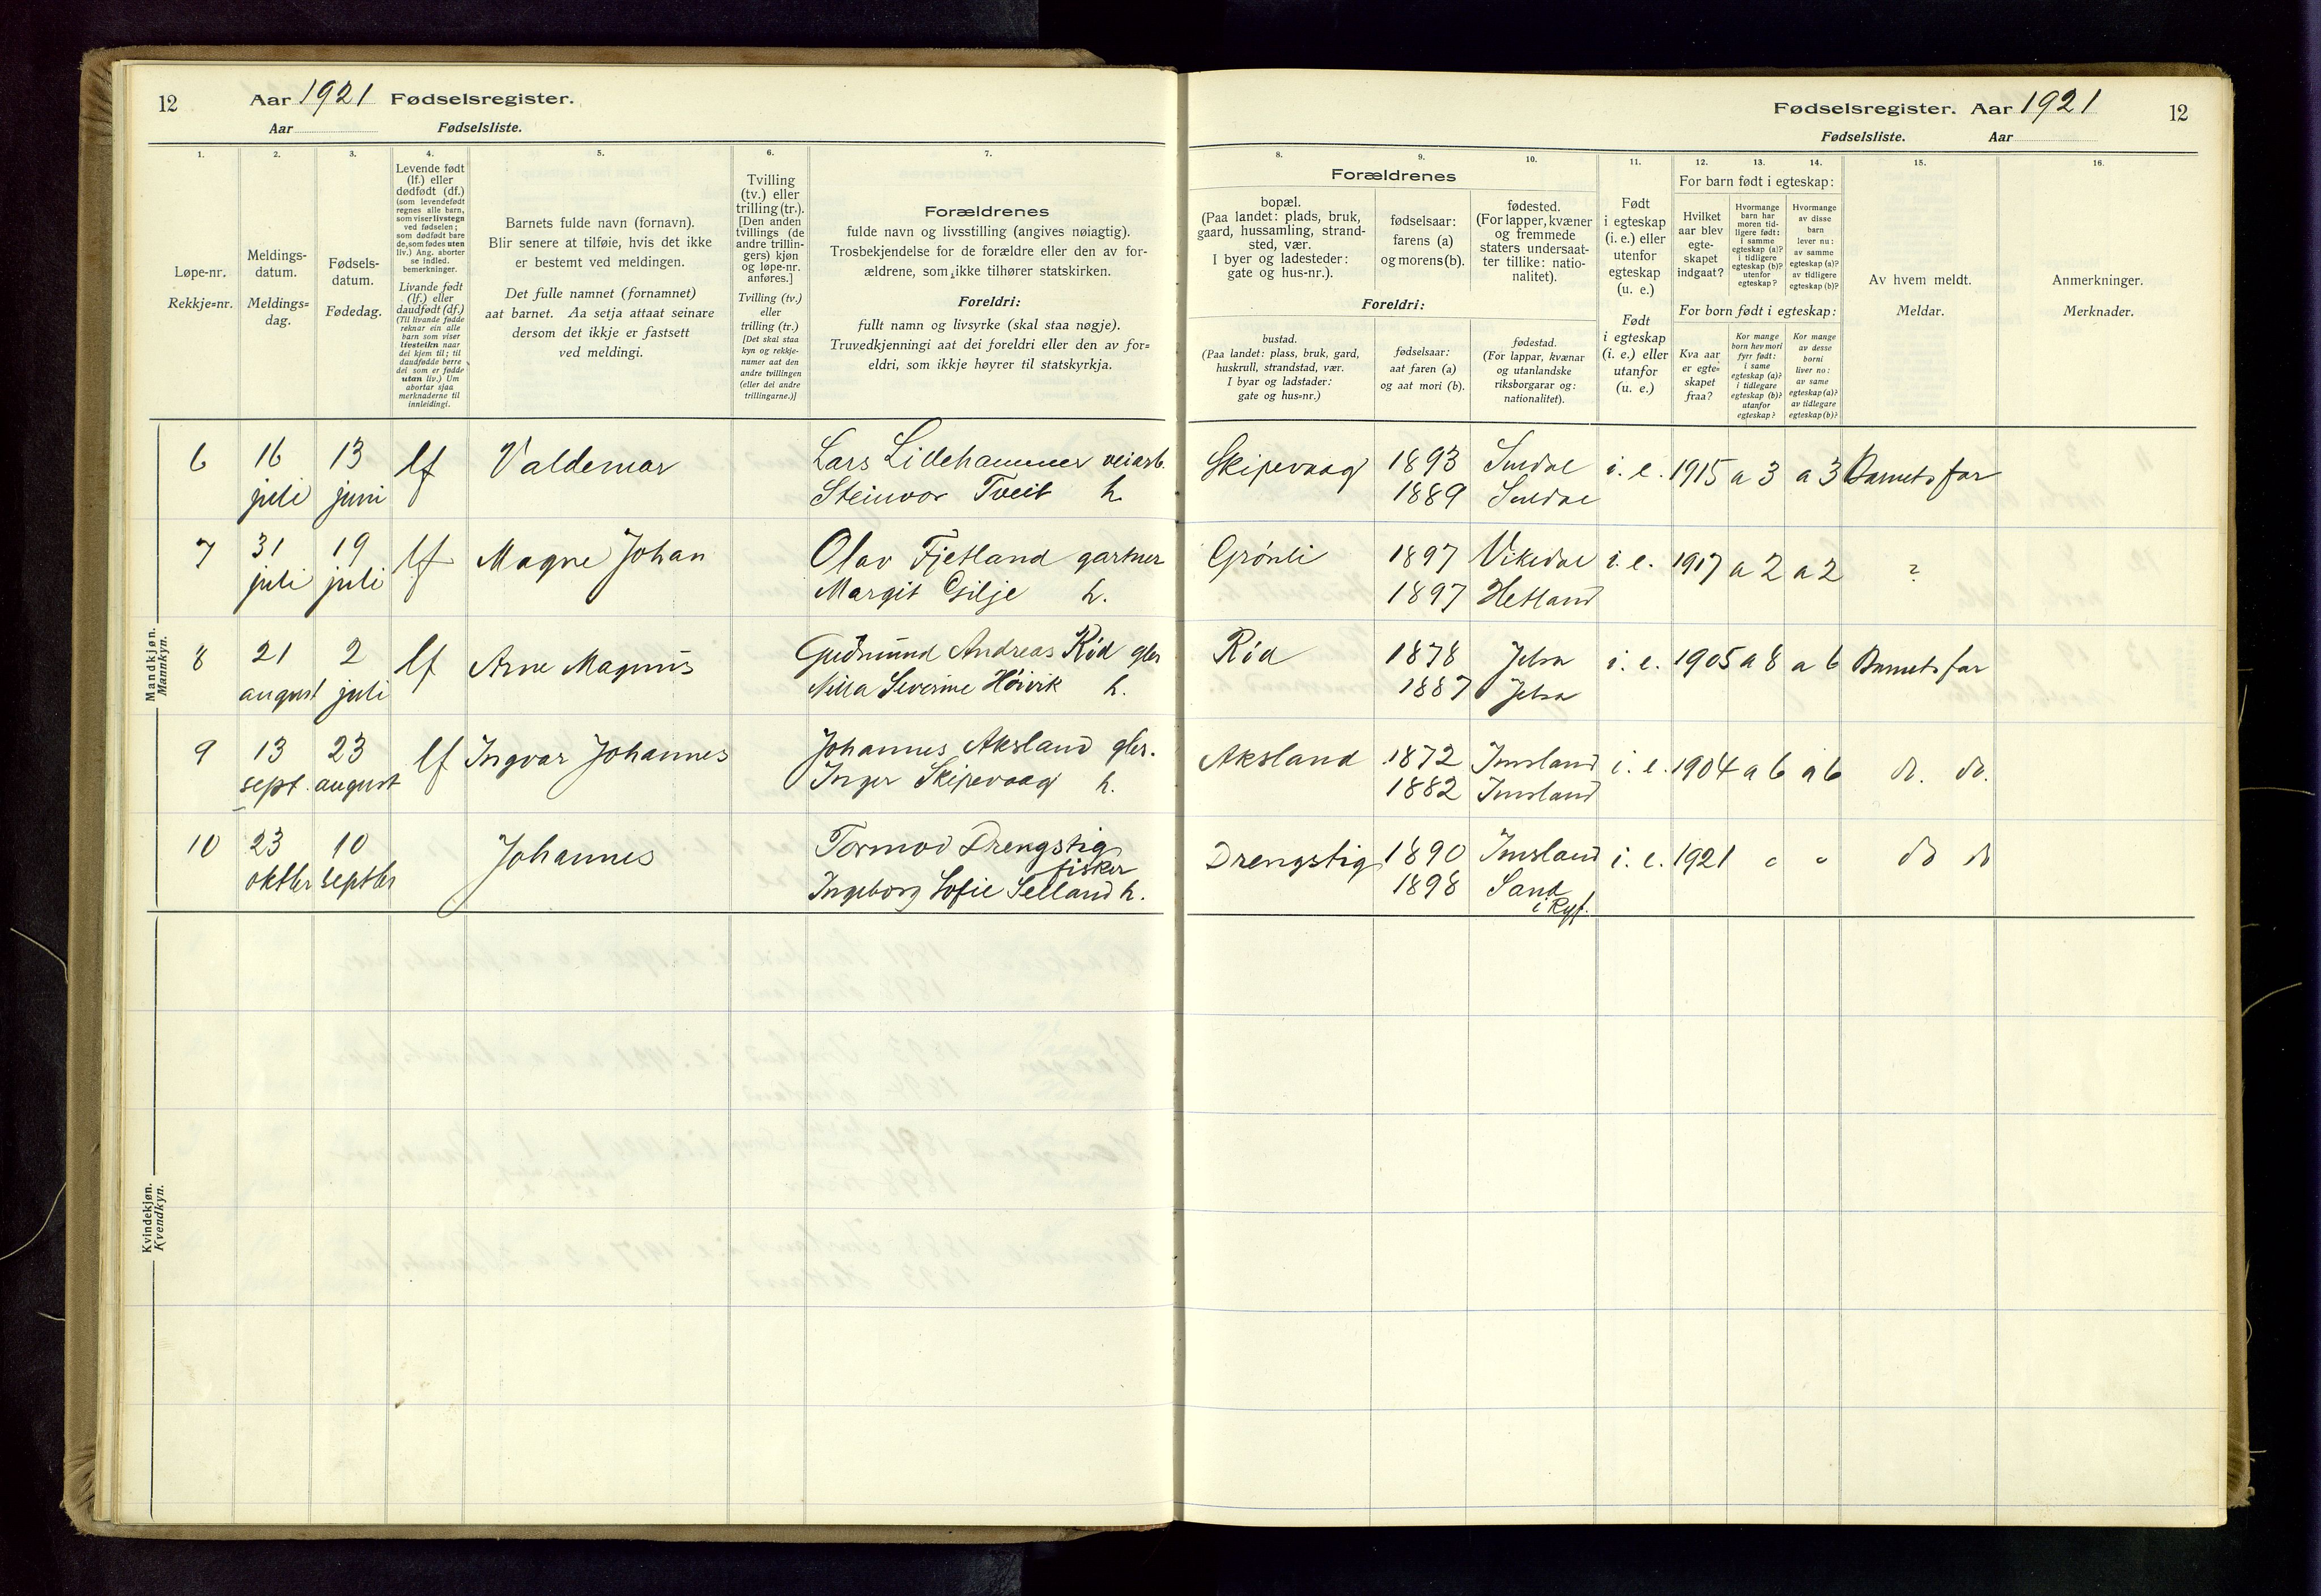 12 Aar 1921 Fødselsregister.
Aar Fødselsliste.
1.
2.
3.
4.
5.
6.
7.
Løpe-nr.
Rekkje=nr.
Meldings-
datum.
Meldings=
dag.
Fødsels-
datum.
Fødedag.
Levende født
(lf.) eller
dødfødt (df.)
(som levendefødt
regnes alle barn,
som viser livstegn
ved fødselen;
som dødfødt bare
de, som fødes uten
liv.) Ang. aborter
se indled.
bemerkninger.
Livande født
(lf.) eller
daudfødt (df.)
(Til livande fødde
reknar ein alle
barn som viser
livsteikn naar
dei kjem til; til
daudfødde berre
dei som er fødde
utan liv.) Um
abortar sjaa
merknaderne til
innleidingi.
Barnets fulde navn (fornavn).
Blir senere at tilføie, hvis det ikke
er bestemt ved meldingen.
Det fulle namnet (fornamnet)
aat barnet. Aa setja attaat seinare
dersom det ikkje er fastsett
ved meldingi.
Tvilling
(tv.) eller
trilling (tr.).
[Den anden
tvillings (de
andre trillin-
gers) kjøn
og løpe-nr.
anføres.]
Tvilling (tv.)
eller
trilling (tr.)
[Det skal staa
kyn og rekkje-
numer aat den
andre tvillingen
(eller dei andre
trillingarne.)]
Forældrenes
fulde navn og livsstilling (angives nøiagtig).
Trosbekjendelse for de forældre eller den av for-
ældrene, som ikke tilhører statskirken.
Foreldri:
fullt namn og livsyrke (skal staa nøgje).
Truvedkjenningi aat dei foreldri eller den av for=
eldri, som ikkje høyrer til statskyrkja.
Mandkjøn.
Mannkyn.
6 16 juli 13 juni lf Valdemar Lars Lillehammer veiarb.
Steinvor Tveit h.
7 31 juli 19 juli lf Magne Johan Olav Fjetland gartner
Margit Gilje h.
8 21 august 2 juli lf Arne Magnus Gudmund Andreas Rød gbr
Nilla Severine Høivik h.
9 13 sept. 23 august lf Ingvar Johannes Johannes Aksland gbr.
Inger Skipevaag h.
10 23 oktbr 10 septbr Johannes Tormod Drengstig
fisker
Ingeborg Sofie Selland h.
Kvindekjøn.
Kvendkyn.
Fødselsregister. Aar 1921 12
Fødselsliste. Aar
8.
9.
10.
11.
12.
13.
14.
15.
16.
Forældrenes
bopæl.
(Paa landet: plads, bruk,
gaard, hussamling, strand-
sted, vær.
I byer og ladesteder:
gate og hus-nr.).
fødselsaar:
farens (a)
og morens (b).
fødested.
(For lapper, kvæner
og fremmede
staters undersaat-
ter tillike: natio-
nalitet).
Foreldri:
bustad.
(Paa landet: plass, bruk, gard,
huskrull, strandstad, vær.
I byar og ladstader:
gate og hus=nr.)
fødselsaar:
aat faren (a)
og aat mori (b).
fødestad.
(For lappar, kvænar
og utanlandske
riksborgarar og:
nationalitet).
Født
i egteskap
(i. e.) eller
utenfor
egteskap
(u. e.)
Født
i egteskap
(i. e.) eller
utanfor
(u. e.)
For barn født i egteskap:
Hvilket
aar blev
egte-
skapet
indgaat?
Hvormange
barn har
moren tid-
ligere født:
i samme
egteskap (a)?
i tidligere
egteskap (b)?
utenfor
egteskap?
Hvormange
av disse
barn
lever nu:
av samme
egteskap (a)?
av tidligere
egteskap (b)?
For born født i egteskap:
Kva aar
er egte=
skapet
fraa?
Kor mange
born hev mori
fyrr født:
i same
egteskap (a)?
i tidlegare
egteskap (b)?
utanfor
egteskap?
Kor mange
av desse
borni
liver no:
av same
egteskap (a)?
av tidlegare
egteskap (b)?
Av hvem meldt.
Meldar.
Anmerkninger.
Merknader.
Skipevaag 1893 Suldal i. e. 1915 a 3 a 3 Barnets far
1889 Suldal
Grønli 1897 Vikedal i. e. 1917 a 2 a 2 ?
1897 Hetland
Rød 1878 Jelsa i. e. 1905 a 8 a 6 Barnets far
1887 Jelsa
Aksland 1872 Imsland i. e. 1904 a 6 a 6 do. do.
1882 Imsland
Drengstig 1890 Imsland i. e. 1921 do do
1898 Sand
i Ryf.